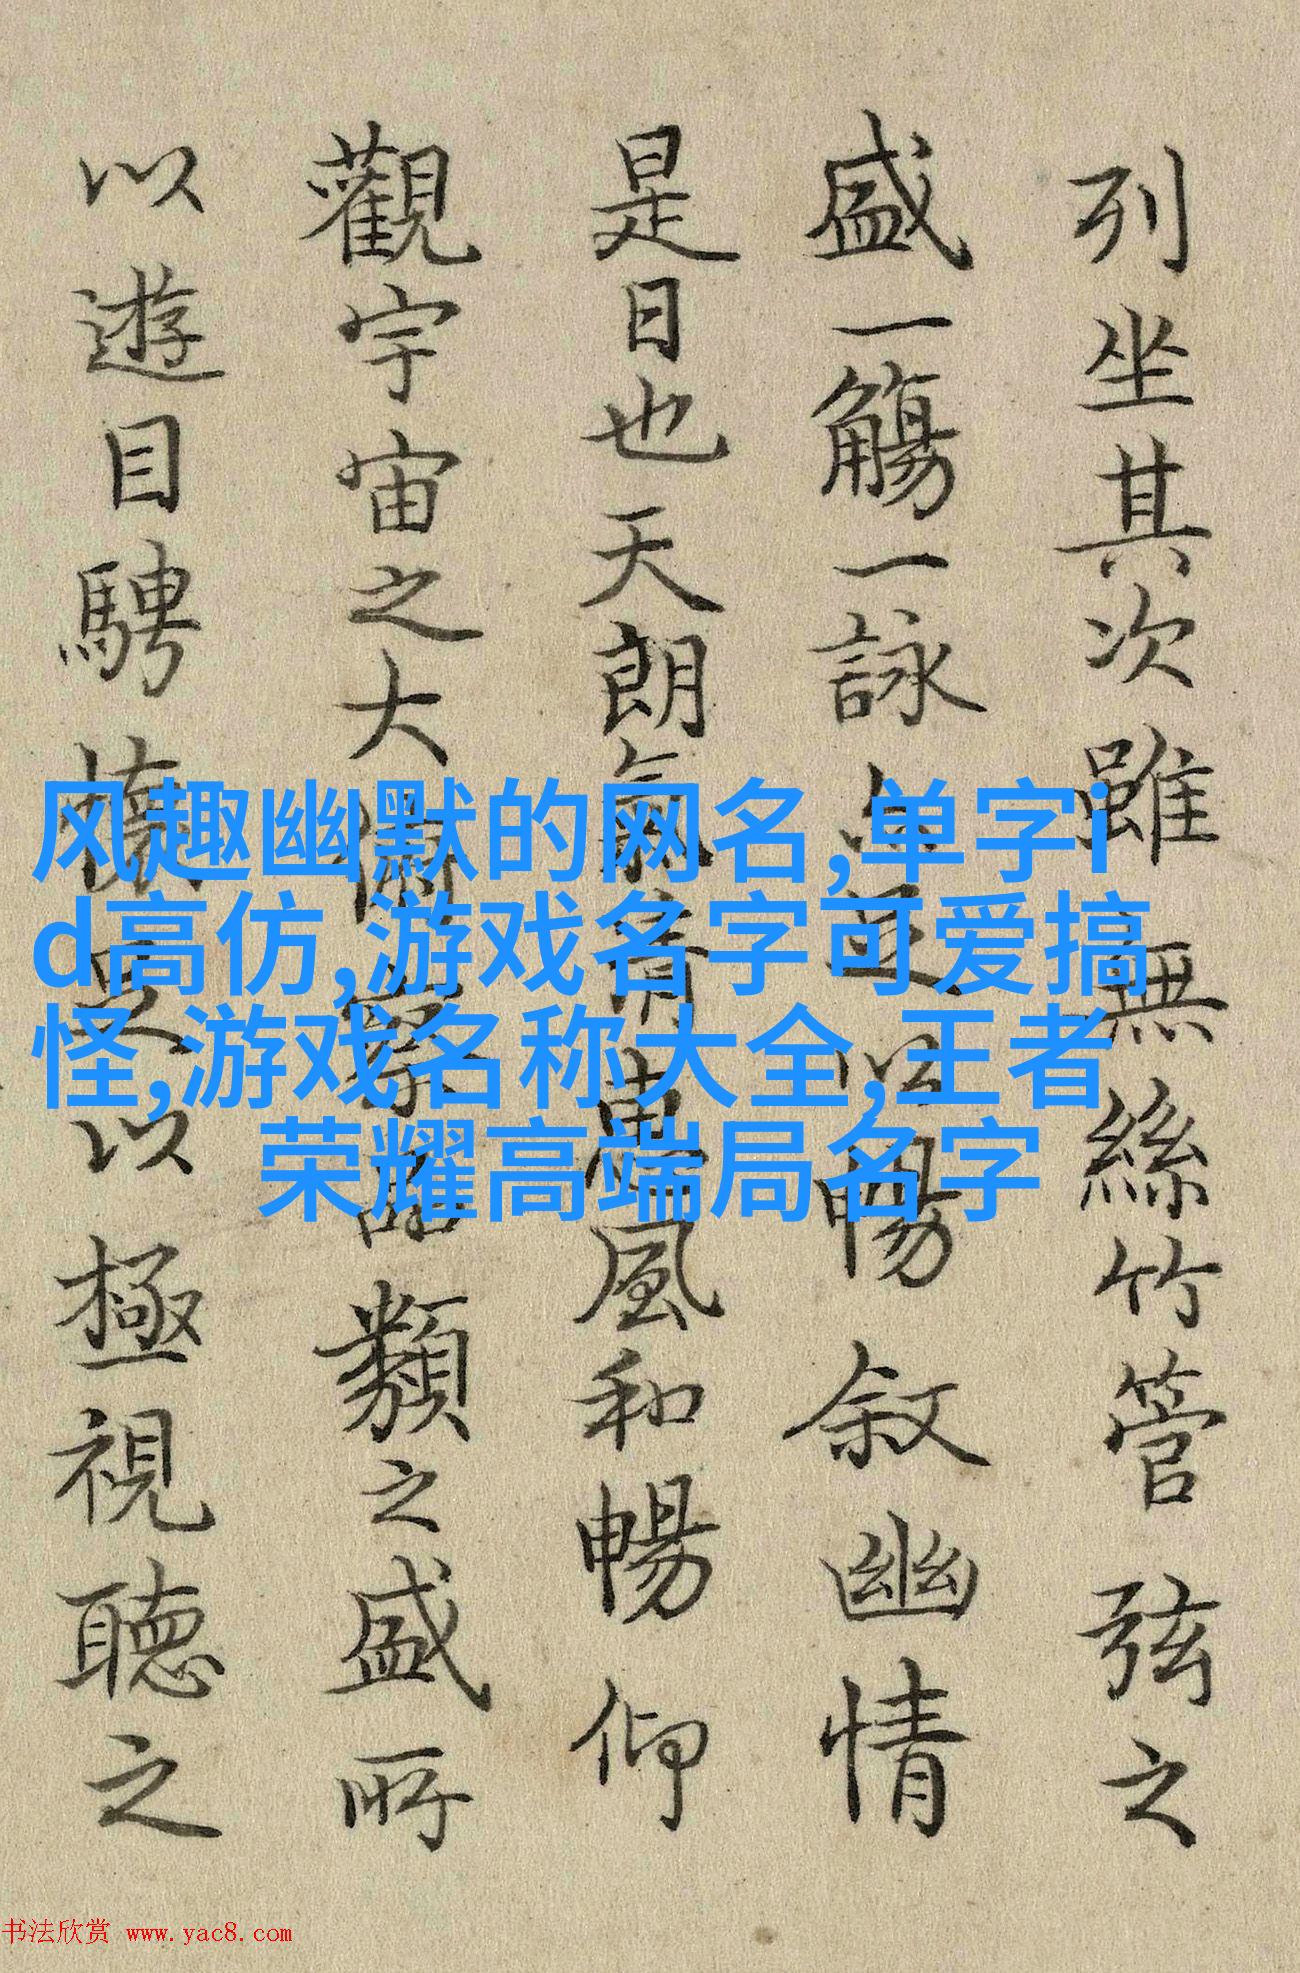 列坐其次雖無絲竹管弦之
盛一觴一詠亦足以暢叙幽情
是日也天朗氣清惠風和暢仰
觀宇宙之大俯察品類之盛所
以遊目騁懷足以極視聽之
风趣幽默的网名,单字i
d高仿,游戏名字可爱搞
怪,游戏名称大全,王者
荣耀高端局名字
书法欣赏 www.yac8.com